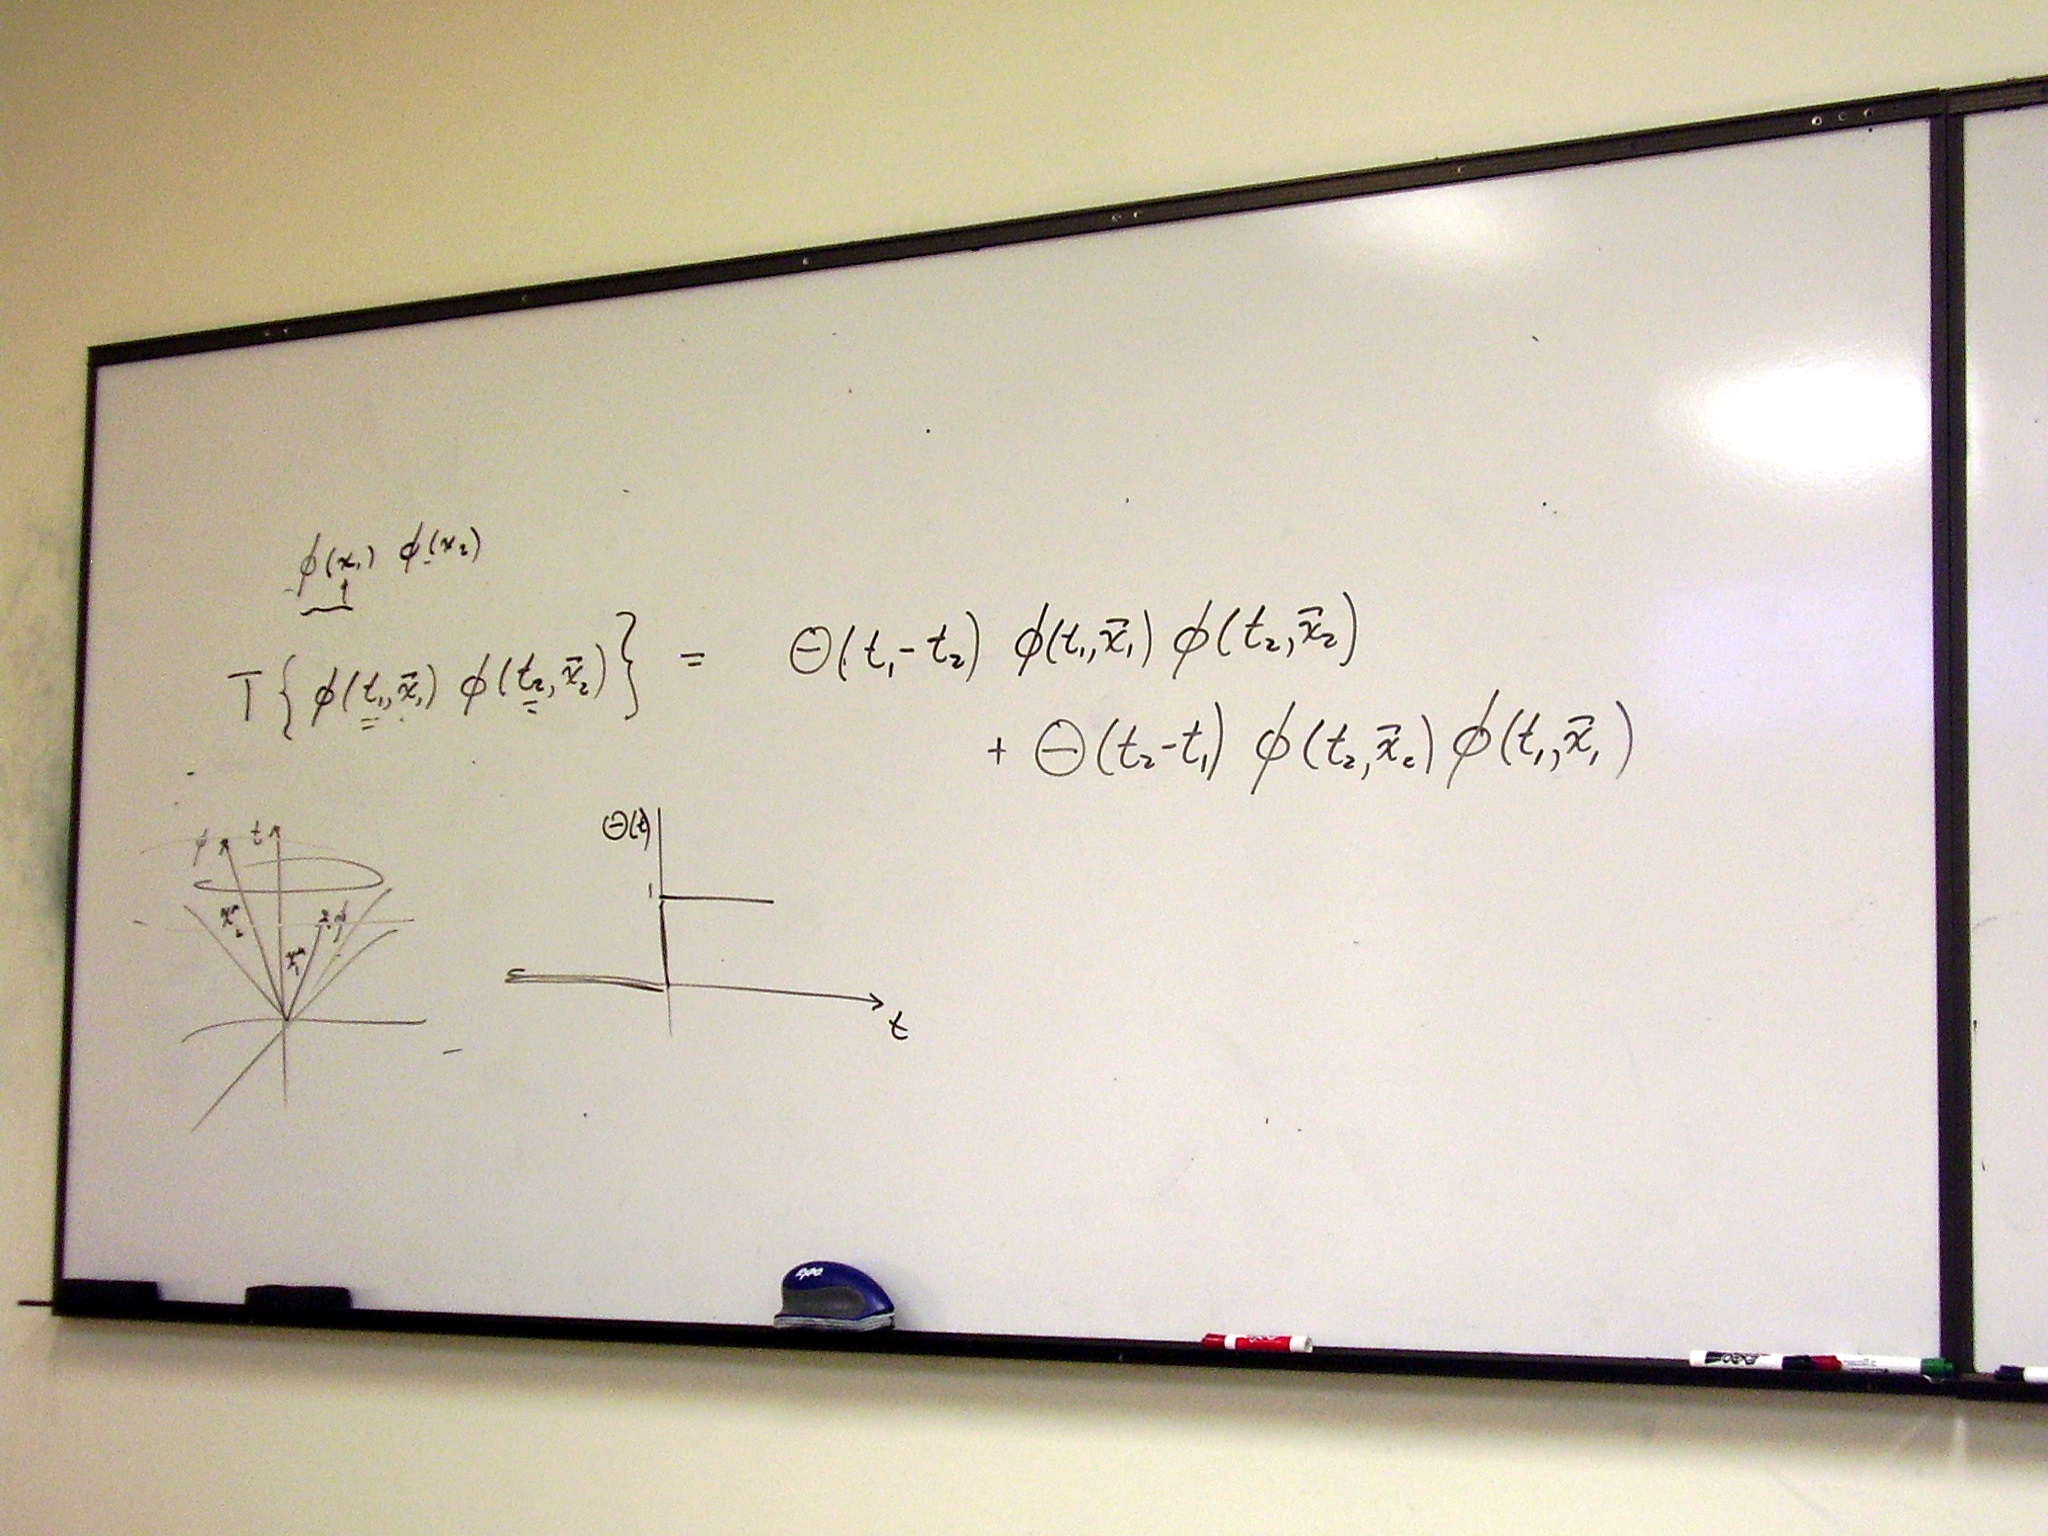 ϕ(x₁) ϕ(x₂)
T{ϕ(t₁,x⃗₁) ϕ(t₂,x⃗₂)} = Θ(t₁-t₂) ϕ(t₁,x⃗₁) ϕ(t₂,x⃗₂)
+ Θ(t₂-t₁) ϕ(t₂,x⃗₂) ϕ(t₁,x⃗₁)
ϕ t
x₂^μ
x₁^μ
Θ(t)
1
t
EXPO
EXPO